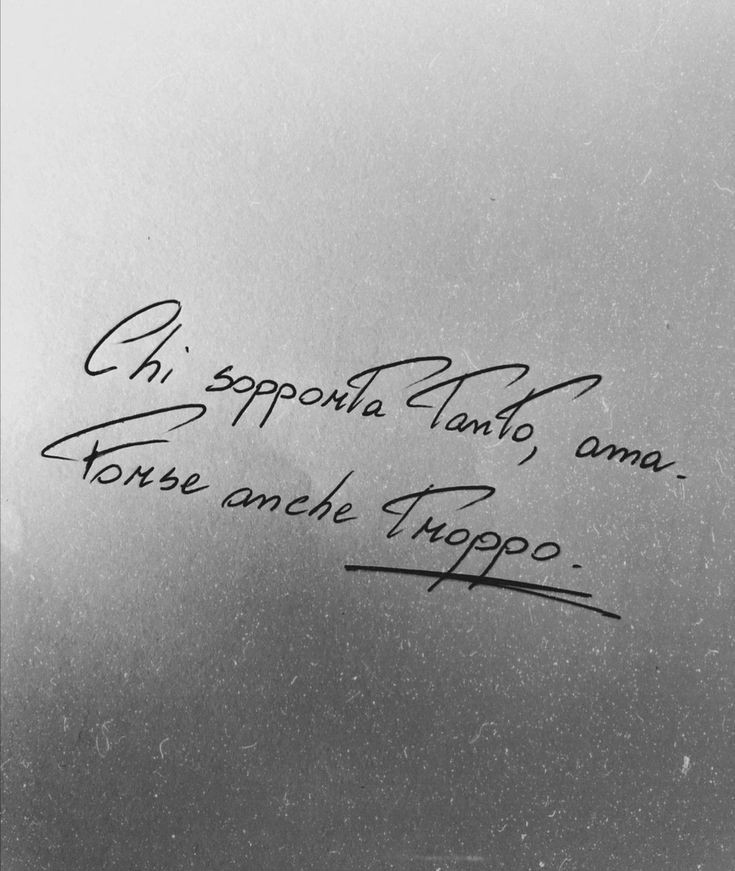 Chi sopporta Tanto, ama.
Forse anche Troppo.